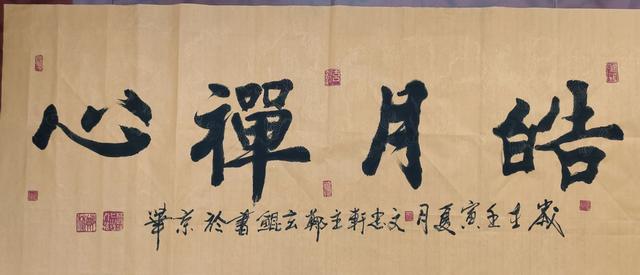 皓月禪心
歲在壬寅夏月文忠軒主鄭玄鯤書於京華